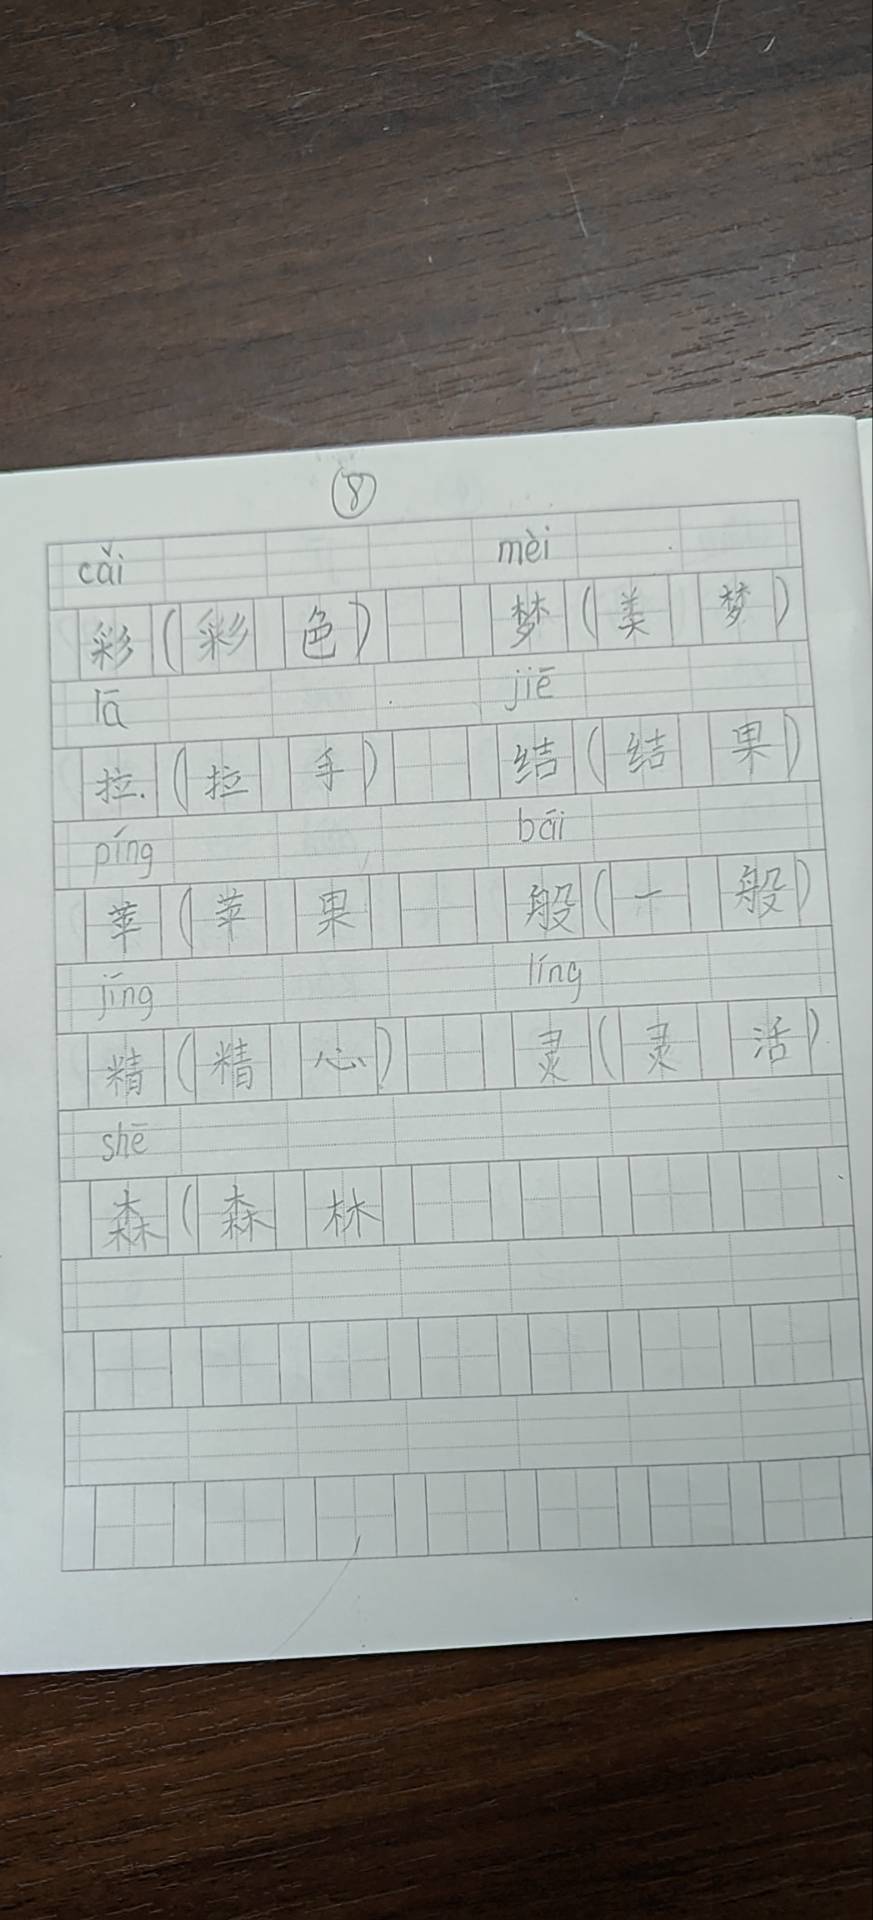 ⑧
cǎi mèi
彩(彩色) 梦(美梦)
lā jiē
拉.(拉手) 结(结果)
píng bāi
苹(苹果 般(一般)
jīng líng
精(精心) 灵(灵活)
shē
森(森林